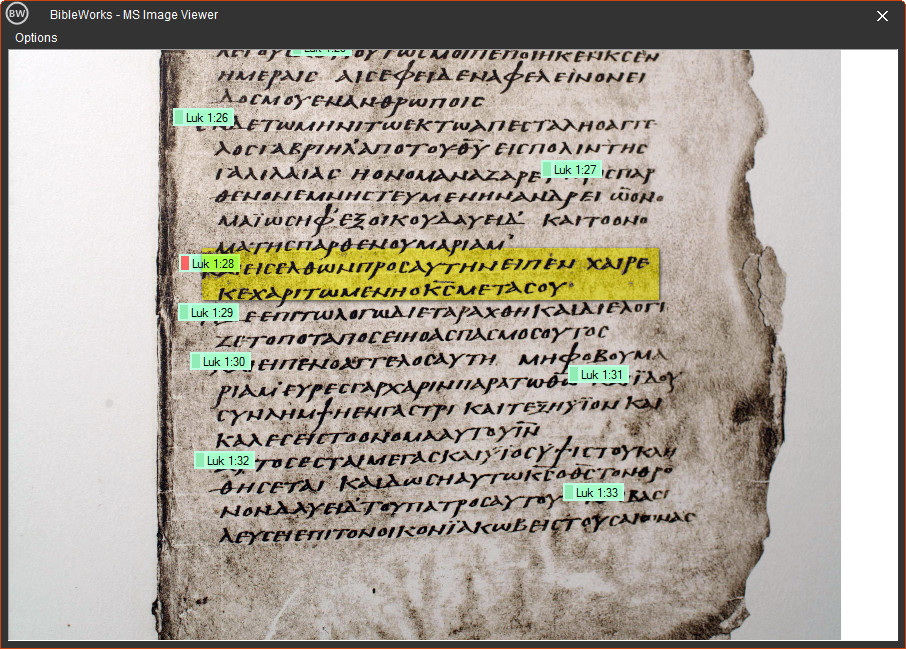 BW BibleWorks - MS Image Viewer
Options
Luk 1:25
ΟΥΤΩϹΜΟΙΠΕΠΟΙΗΚΕΝΚϹΕΝ
ΗΜΕΡΑΙϹ ΑΙϹΕΦΕΙΔΕΝΑΦΕΛΕΙΝΟΝΕΙ
ΔΟϹΜΟΥΕΝΑΝΘΡΩΠΟΙϹ
Luk 1:26 ΔΕΤΩΜΗΝΙΤΩΕΚΤΩΑΠΕϹΤΑΛΗΟΑΓΓΕ
ΛΟϹΓΑΒΡΙΗΛ ΑΠΟΤΟΥΘ̅Υ̅ ΕΙϹΠΟΛΙΝΤΗϹ
ΓΑΛΙΛΑΙΑϹ ΗΟΝΟΜΑΝΑΖΑΡΕ Luk 1:27 ϹΠΑΡ
ΘΕΝΟΝΕΜΝΗϹΤΕΥΜΕΝΗΝΑΝΔΡΕΙ ΩΟΝΟ
ΜΑΪΩϹΗΦ ΕΞΟΙΚΟΥΔΑΥΕΙΔ ΚΑΙΤΟΟΝΟ
ΜΑΤΗϹΠΑΡΘΕΝΟΥΜΑΡΙΑΜ
Luk 1:28 ΕΙϹΕΛΘΩΝΠΡΟϹΑΥΤΗΝΕΙΠΕΝ ΧΑΙΡΕ
ΚΕΧΑΡΙΤΩΜΕΝΗΟΚ̅Ϲ̅ΜΕΤΑϹΟΥ
Luk 1:29 ΕΕΠΙΤΩΛΟΓΩΔΙΕΤΑΡΑΧΘΗΚΑΙΔΙΕΛΟΓΙ
ΖΕΤΟΠΟΤΑΠΟϹΕΙΗΟΑϹΠΑϹΜΟϹΟΥΤΟϹ
Luk 1:30 ΕΙΠΕΝΟΑΓΓΕΛΟϹΑΥΤΗ ΜΗΦΟΒΟΥΜΑ
ΡΙΑΜ ΕΥΡΕϹΓΑΡΧΑΡΙΝΠΑΡΑΤΩΘ̅ Luk 1:31 ΪΔΟΥ
ϹΥΝΛΗΜΨΗΕΝΓΑϹΤΡΙ ΚΑΙΤΕΞΗΫΙΟΝΚΑΙ
ΚΑΛΕϹΕΙϹΤΟΟΝΟΜΑΑΥΤΟΥΙ̅Ν̅
Luk 1:32 ΤΟϹΕϹΤΑΙΜΕΓΑϹΚΑΙΫΙΟϹΫΨΙϹΤΟΥΚΛΗ
ΘΗϹΕΤΑΙ ΚΑΙΔΩϹΗΑΥΤΩΚ̅Ϲ̅ΟΘ̅Ϲ̅ΤΟΝΘΡΟ
ΝΟΝΔΑΥΕΙΔΤΟΥΠΑΤΡΟϹΑΥΤΟΥ Luk 1:33 ΒΑϹΙ
ΛΕΥϹΕΙΕΠΙΤΟΝΟΙΚΟΝΪΑΚΩΒΕΙϹΤΟΥϹΑΙΩΝΑϹ